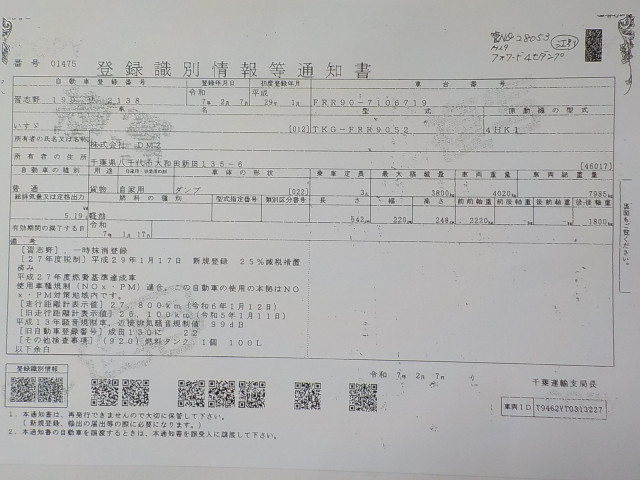 番号 01475
登録識別情報等通知書
自動車登録番号 登録年月日 初度登録年月 車台番号
令和 平成
7年 2月 7日 29年 1月 FRR90-7106719
車名 型式 原動機の型式
いすゞ [012] TKG-FRR90S2 4HK1
所有者の氏名又は名称
所有者の住所 千葉県八千代市大和田新田135-6 [46017]
自動車の種別 用途 車体の形状 乗車定員 最大積載量 車両重量 車両総重量
普通 貨物 自家用 ダンプ [022] 3人 3800kg 4020kg 7985kg
総排気量又は定格出力 燃料の種類 型式指定番号 類別区分番号 長さ 幅 高さ 前前軸重 前後軸重 後前軸重 後後軸重
5.19 軽油 542cm 220cm 248cm 2220kg 1800kg
有効期間の満了する日 令和
7年 1月17日
備考
[習志野],一時抹消登録
[27年度税制]平成29年1月17日 新規登録 25%減税措置
済み
平成27年度燃費基準達成車
使用車種規制(NOx・PM)適合,この自動車の使用の本拠はNO
x・PM対策地域内です.
[走行距離計表示値]27,800km(令和6年1月12日)
[旧走行距離計表示値]26,100km(令和5年1月11日)
平成13年騒音規制車,近接排気騒音規制値 99dB
[旧自動車登録番号]成田130に 22
[その他検査事項](920)燃料タンク,1個 100L
以下余白
令和 7年 2月 7日
千葉運輸支局長
登録識別情報
車両ID T9462YT0313227
1.本通知書は、再発行できませんので大切に保管して下さい。
(新規登録、輸出の届出等の際に必要になります。)
2.本通知書の自動車を譲渡するときは、本通知書を譲受人に譲渡して下さい。
裏面もご覧ください。